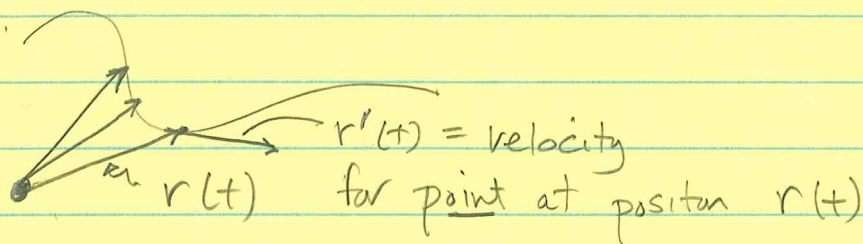 r'(t) = velocity
r(t) for point at positon r(t)